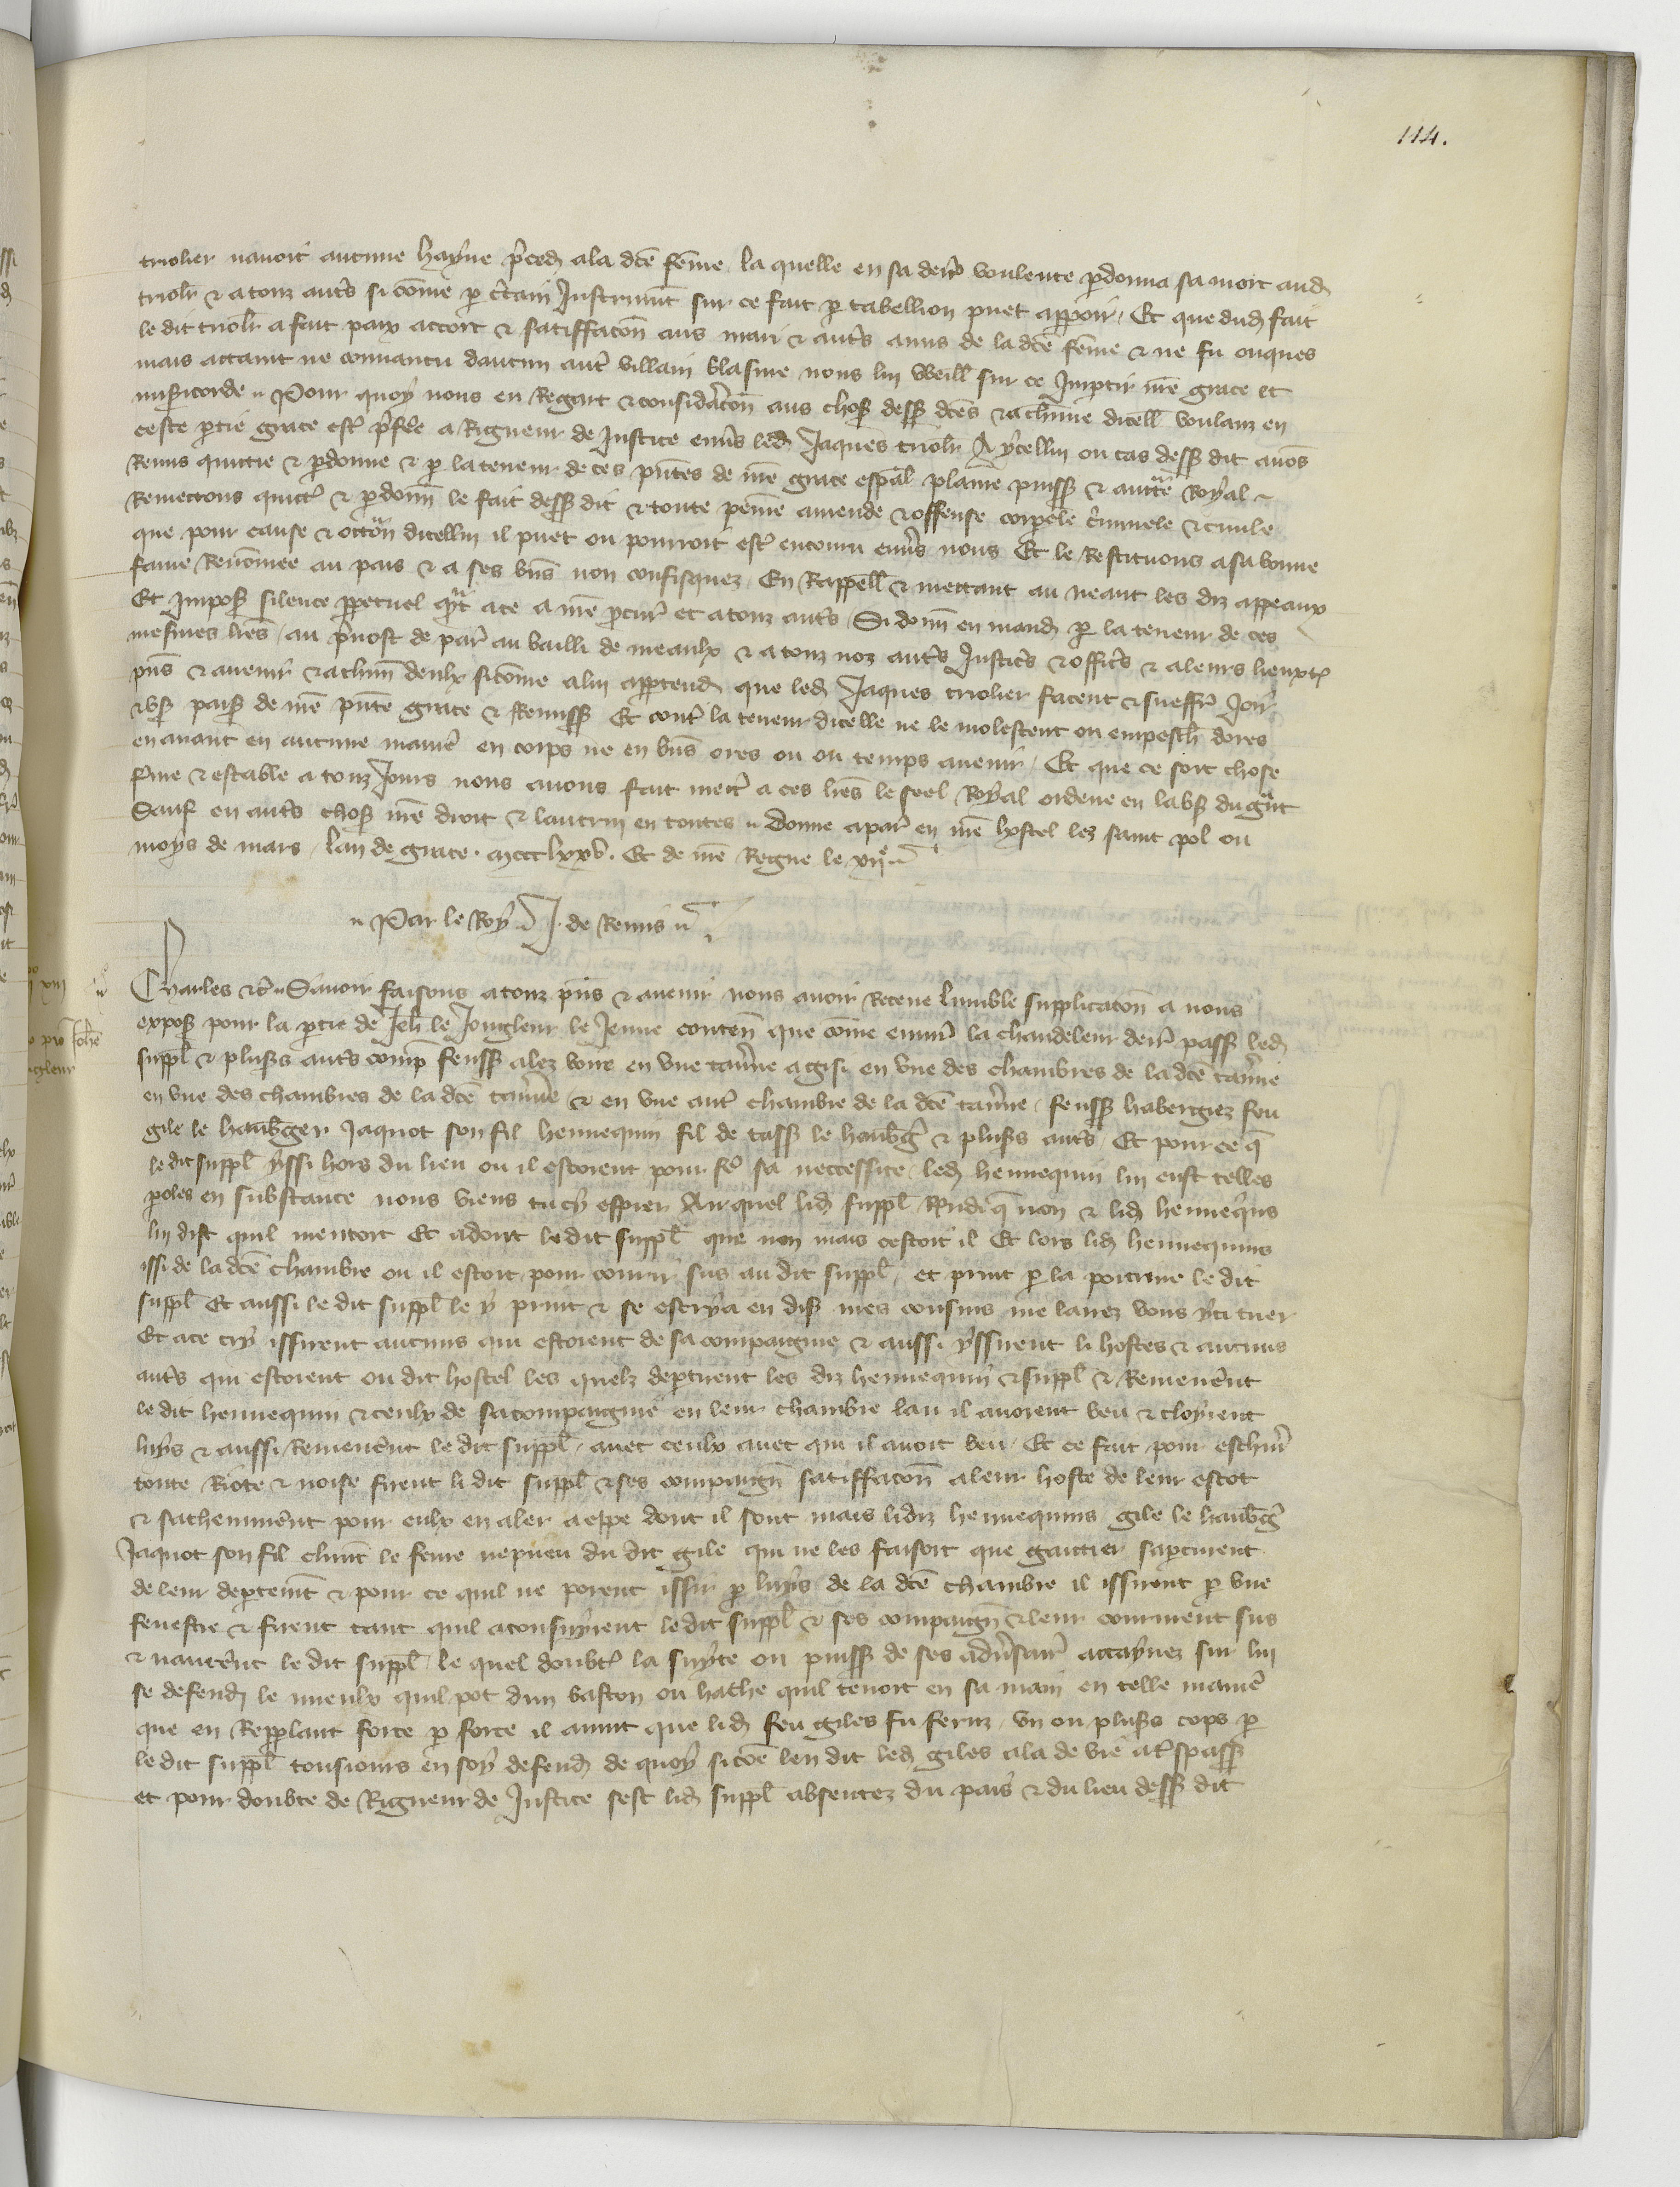 114.
triolier navoit aucune hayne p̃ced̃ ala dcẽ fẽme la quelle en sa dern̄ voulente p̱donna sa mort aud̃
triol̃r & a touz aut̃s si cõme p̱ c̃tain Instrum̃t sur ce fait p̱ tabellion puet apparoir, Et que dud̃ fait
le dit triol̃r a fait paix accort & satisffacõn aus mari & aut̃s amis de la dcẽ fẽme & ne fu onques
mais attaint ne convaincu daucun aut̃ villain blasme nous lui vueill̃ sur ce Imp̱tir nr̃e grace et
mis̃icorde ~ Pour quoy nous en Regart & considerac̃on aus chos̃ dess̃ dc̃es & a clamẽ dicell̃ voulanz en
ceste p̱tie grace est̃ p̃fer̃e a Rigueur de Justice env̄s led̃ Jaques triol̃r A ycellui ou cas dess̃ dit avõs
Remis quittie & p̱donne & p̱ la teneur de ces p̃ntes de nr̃e grace esp̃al plain̄e puiss̃ & auct̃te Royal ~
Remettons quitt̃ & p̱donn̄ le fait dess̃ dit & toute peinne amende & offense corpele c̃iminele & civile
que pour cause & occõn dicellui il puet ou pourroit est̃ encouru env̄s nous Et le Restituons a sa bonne
fame Renõmee au pais & a ses biẽs non confisquez, En Rappell̃ & mettant au neant les diz appeaux
Et Impos̃ silence p̱petuel q̃nt a ce a nr̃e p̱cur̃ et a touz aut̃s, Si donn̄ en mand̃ p̱ la teneur de ces
mesmes lr̃es, au p̃vost de par̃ au bailli de meaulx & a touz noz aut̃s Justic̃s & offic̃s & a leurs lieuxt̃
p̃ns & avenir & a chun̄ deulx sicõme a lui app̱tend̃ que led̃ Jaques triolier facent & sueffr̃ Joir̃
& us̃ paisi᷒ de nr̃e p̃nte grace & Remiss̃ Et cont̃ la teneur dicelle ne le molestent ou empesch̃ dores
en avant en aucune manier̃ en corps ne en biẽs ores ou ou temps avenir, Et que ce soit chose
ferme & estable a touz Jours nous avons fait mett̃ a ces lr̃es le seel Royal ordene en labs̃ du g̃nt
Sauf en aut̃s chos̃ nr̃e droit & lautrui en toutes ~ Donne a par̃ en nr̃e hostel lez saint pol ou
moys de mars, lan de grace . mccclxxv. Et de nr̃e Regne le xij.e ~
~ Par le Roy J. de Remis ~
Charles &c̃ ~ Savoir faisons a touz p̃ns & avenir nous avoir Receue lumble supplicacõn a nous
expos̃ pour la p̱tie de Jeh̃ le Jongleur le Jeune conten̄ que cõme environ̄ la chandeleur dern̄ pass̃ led̃
suppl̃ & plus̃s aut̃s comp̃ feuss̃ alez boire en une tav̄ne a gisi en une des chambres de la dcẽ tav̄ne
en une des chambres de la dcẽ tav̄ne & en une aut̃ chambre de la dcẽ tav̄ne, feuss̃ habergiez feu
gile le haub̃ger Jaquot son fil hennequin fil de tass̃ le haub̃g̃ & plus̃s aut̃s, Et pour ce q̃
le dit suppl̃ yssi hors du lieu ou il estoient pour fe᷒ sa neccessite, led̃ hennequin lui eust telles
p̱oles en substance nous viens tu cy espier Au quel lid̃ suppl̃ Rndi q̃ non & lid̃ hennequ᷒ins
lui dist quil mentoit Et adont ledit suppl̃ que non mais cestoit il Et lors lid̃ hennequins
issi de la dcẽ chambre ou il estoit pour courir sus au dit suppl̃, et print p̱ la poitrine le dit
suppl̃ Et aussi le dit suppl̃ le y print & se escrya en dis̃ mes cousins me larrez vous yci tuer
Et a ce cry issirent aucuns qui estoient de sa compaignie & aussi yssirent li hostes & aucuns
aut̃s qui estoient ou dit hostel les quelz dep̱tirent les diz hennequin & suppl̃ & Remener̃nt
le dit hennequin & ceulx de sa compaignie en leur chambre lau il avoient beu & cloyrent
luys & aussi Remener̃nt le dit suppl̃, avec ceulx avec qui il avoit beu, Et ce fait pour eschiver̃
toute Riote & noise firent li dit suppl̃ & ses compaign̄ satisffacõn a leur hoste de leur escot
& sachemin̄ent pour eulx en aler a espe dont il sont mais lidiz hennequins gile le haub̃g̃
Jaquot son fil clim̃t le feme nepveu du dit gile qui ne les faisoit que gaitier sap̱curent
de leur dep̱tem̃t & pour ce quil ne porent issir p̱ luys de la dcẽ chambre il issirent p̱ une
fenestre & firent tant quil aconsuyrent ledit suppl̃ & ses compaign̄ & leur coururent sus
& navrer̃nt le dit suppl̃ le quel doubt̃ la suyte ou puiss̃ de ses adv̄sair̃ attaynez sur lui
se defend̃ le mieulx quil pot dun baston ou hache quil tenoit en sa main en telle manier̃
que en Repp̱lant force p̱ force il avint que lid̃ feu giles fu feruz, un ou plus̃s cops p̱
le dit suppl̃ tousjours en soy defend̃ de quoy sicõe len dit led̃ giles ala de vie a t̃spass̃
et pour doubte de Rigueur de Justice sest lid̃ suppl̃ absentez du pais & du lieu dess̃ dit